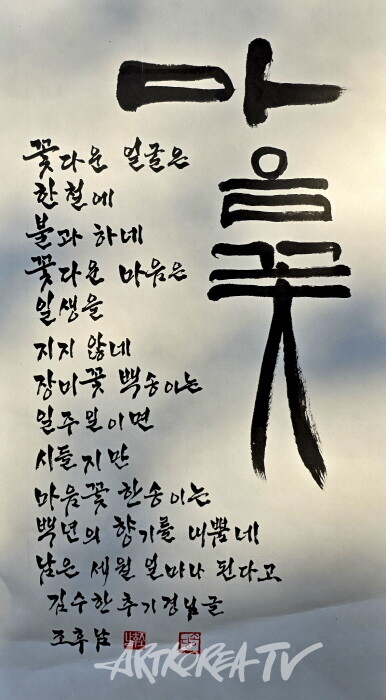 마음꽃
꽃다운 얼굴은
한철에
불과 하네
꽃다운 마음은
일생을
지지 않네
장미꽃 백송이는
일주일이면
시들지만
마음꽃 한송이는
백년의 향기를 내뿜네!
남은 세월 얼마나 된다고
김수한 추기경님글
조후남
ARTKOREA TV